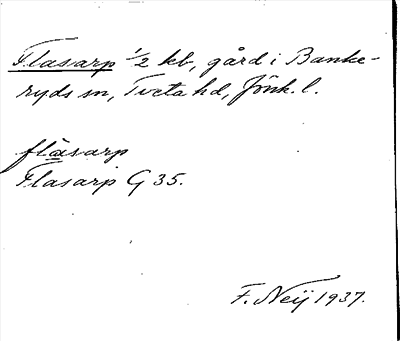 Flasarp 1/2 kb, gård i Banke-
ryds sn, Tveta hd, Jönk. l.
flasarp
Flasarp G 35.
F. Neij 1937.